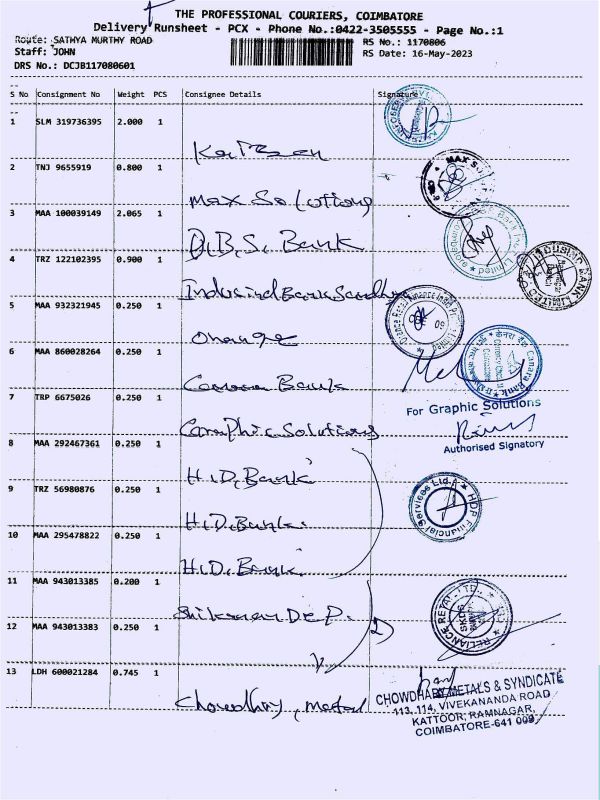 THE PROFESSIONAL COURIERS, COIMBATORE
Delivery Runsheet - PCX - Phone No.:0422-3505555 - Page No.:1
Route: SATHYA MURTHY ROAD RS No.: 1170806
Staff: JOHN RS Date: 16-May-2023
DRS No.: DCJB117080601
S No Consignment No Weight PCS Consignee Details Signature
1 SLM 319736395 2.000 1
2 TNJ 9655919 0.800 1
Max Solutions
3 MAA 100039149 2.065 1
D.B.S. Bank
4 TRZ 122102395 0.900 1
Indusind Bank
5 MAA 932321945 0.250 1
6 MAA 860028264 0.250 1
Canara Bank
7 TRP 6675026 0.250 1
For Graphic Solutions
Graphic Solutions
Authorised Signatory
8 MAA 292467361 0.250 1
H.D. Bank
9 TRZ 56980876 0.250 1
H.D. Bank
HDP Financial Services Ltd.
10 MAA 295478822 0.250 1
H.D. Bank
11 MAA 943013385 0.200 1
12 MAA 943013383 0.250 1
13 LDH 600021284 0.745 1
Chowdhry, Metal
CHOWDHARY METALS & SYNDICATE
113, 114, VIVEKANANDA ROAD
KATTOOR, RAMNAGAR,
COIMBATORE-641 009